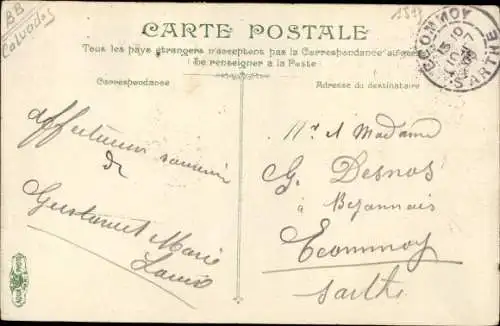 BB
Calvados
CARTE POSTALE
Tous les pays étrangers n'acceptent pas la Correspondance au
(Se renseigner à la Poste)
Correspondance
Adresse du destinataire
ECOMMOY
SARTHE
affectueux souvenir
de
Marie
Louise
Mr et Madame
G. Desnos
à Bezonnais
Ecommoy
Sarthe